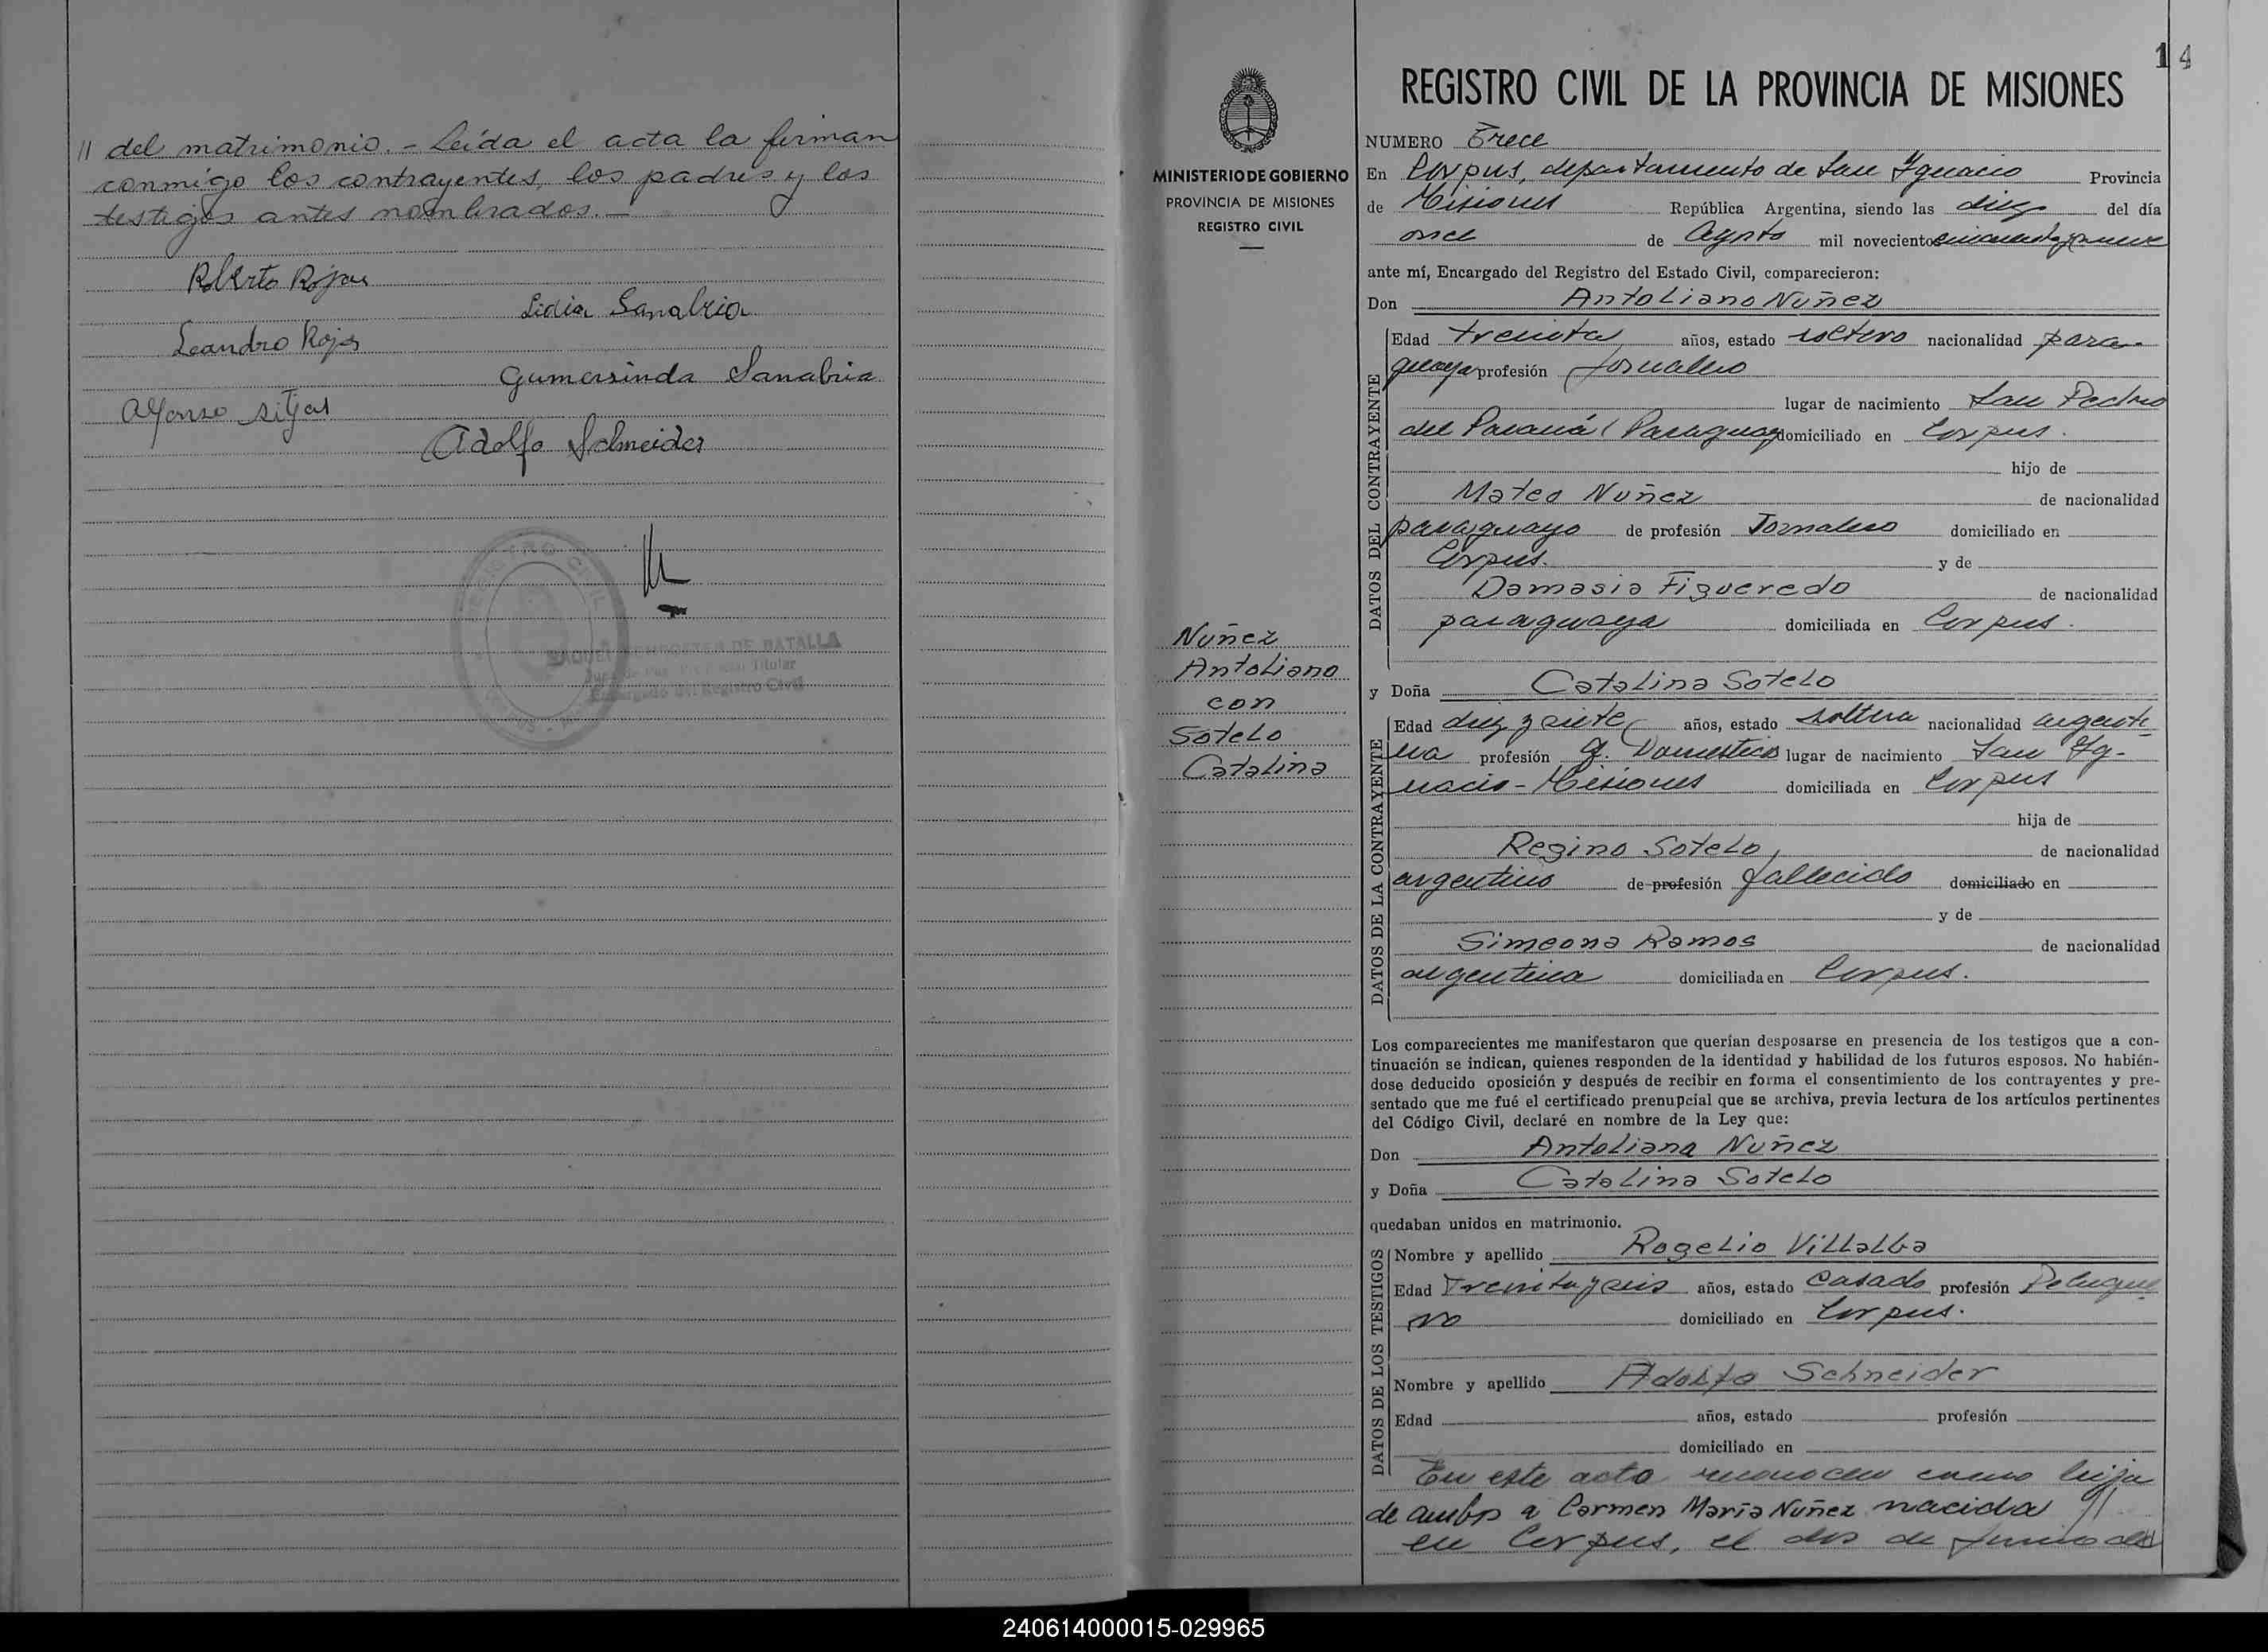 // del matrimonio. - Leída el acta la firman
conmigo los contrayentes, los padres y los
testigos antes nombrados. -
Roberto Rojas
Lidia Sanabria
Leandro Rojas
Gumersinda Sanabria
Alfonso
Adolfo Schneider
REGISTRO CIVIL
DE BATALLA
Titular
Encargado del Registro Civil
14
MINISTERIO DE GOBIERNO
PROVINCIA DE MISIONES
REGISTRO CIVIL
Nuñez
Antoliano
con
Sotelo
Catalina
REGISTRO CIVIL DE LA PROVINCIA DE MISIONES
NUMERO Trece
En Corpus, departamento de San Ignacio Provincia
de Misiones República Argentina, siendo las diez del día
once de Agosto mil novecientos cincuenta y nueve
ante mí, Encargado del Registro del Estado Civil, comparecieron:
Don Antoliano Nuñez
DATOS DEL CONTRAYENTE
Edad treinta años, estado soltero nacionalidad para-
guaya profesión Jornalero
lugar de nacimiento San Pedro
del Paraná (Paraguay domiciliado en Corpus.
hijo de
Mateo Nuñez de nacionalidad
paraguayo de profesión Jornalero domiciliado en
Corpus. y de
Damasia Figueredo de nacionalidad
paraguaya domiciliada en Corpus.
y Doña Catalina Sotelo
DATOS DE LA CONTRAYENTE
Edad diez y siete años, estado soltera nacionalidad argenti-
na profesión Q. Domésticos lugar de nacimiento San Ig-
nacio - Misiones domiciliada en Corpus
hija de
Regino Sotelo, de nacionalidad
argentino de profesión fallecido domiciliado en
y de
Simeona Ramos de nacionalidad
argentina domiciliada en Corpus.
Los comparecientes me manifestaron que querían desposarse en presencia de los testigos que a con-
tinuación se indican, quienes responden de la identidad y habilidad de los futuros esposos. No habién-
dose deducido oposición y después de recibir en forma el consentimiento de los contrayentes y pre-
sentado que me fué el certificado prenupcial que se archiva, previa lectura de los artículos pertinentes
del Código Civil, declaré en nombre de la Ley que:
Don Antoliano Nuñez
y Doña Catalina Sotelo
quedaban unidos en matrimonio.
DATOS DE LOS TESTIGOS
Nombre y apellido Rogelio Villalba
Edad Treinta y seis años, estado Casado profesión Peluque
ro domiciliado en Corpus.
Nombre y apellido Adolfo Schneider
Edad años, estado profesión
domiciliado en
En este acto reconocen como hija
de ambos a Carmen María Nuñez nacida
en Corpus, el dos de Junio del
240614000015-029965